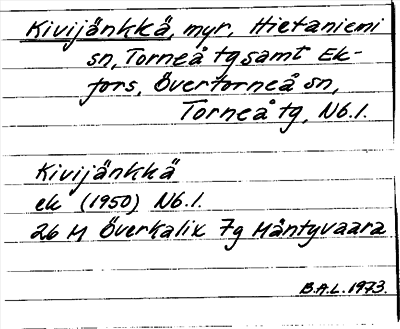 Kivijänkkä, myr, Hietaniemi
sn, Torneå tg samt Ek-
fors, Övertorneå sn,
Torneå tg, Nb.l.
Kivijänkkä
ek (1950) Nb.l.
26 M Överkalix 7g Mäntyvaara
B.A.L. 1973.